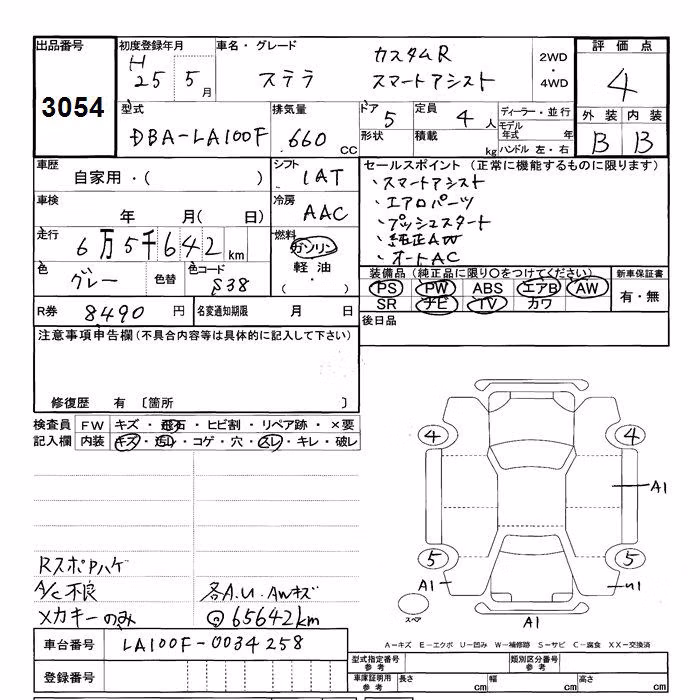 出品番号
3054
初度登録年月
H
25 5月
車名・グレード
ステラ
カスタムR
スマートアシスト
2WD
・
4WD
評価点
4
型式
DBA-LA100F
排気量
660 CC
ドア
5
定員
4人
形状
積載
kg
ディーラー・並行
モデル年式 年
ハンドル 左・右
外装 内装
B B
車歴
自家用・( )
シフト
IAT
車検
年 月( 日)
冷房
AAC
走行
6万5千642km
燃料
ガソリン
軽油
( ・ )
色
グレー
色替
色コード
S38
R券
8490円
名変通知期限
月 日
セールスポイント(正常に機能するものに限ります)
・スマートアシスト
・エアロパーツ
・プッシュスタート
・純正AW
・オートAC
装備品(純正品に限り○をつけてください)
PS PW ABS エアB AW
SR ナビ TV カワ
新車保証書
有・無
後日品
注意事項申告欄(不具合内容等は具体的に記入して下さい)
修復歴 有 〔箇所 〕
検査員
記入欄
FW キズ・飛石・ヒビ割・リペア跡・×要
内装 キズ・汚レ・コゲ・穴・スレ・キレ・破レ
Rスポハゲ
A/C不良
各A.U.AWキズ
メカキーのみ
@65642km
4 4
A1
5 5
A1 U1
スペア
A1
A−キズ E−エクボ U−凹み W−補修跡 S−サビ C−腐食 XX−交換済
車台番号
LA100F-0034258
登録番号
型式指定番号
参考
類別区分番号
参考
車庫証明用
参考
長さ cm
幅 cm
高さ cm